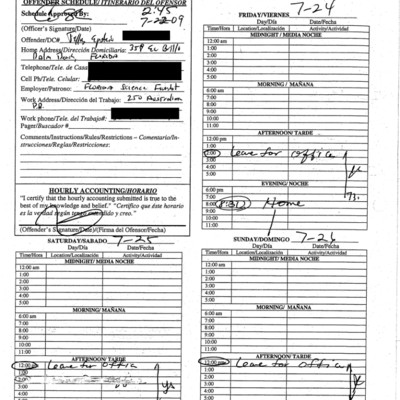 OFFENDER SCHEDULE/ITINERARIO DEL OFENSOR
Schedule Approved By: 2:45
7-22-09
(Officer's Signature/Date)
Offender/DC#
Home Address/Dirección Domiciliaria: 358 El Brillo
Palm Beach, Florida
Telephone/Tele. de Casa
Cell Ph/Tele. Celular:
Employer/Patrono: Florida Science Foundat
Work Address/Dirección del Trabajo: 250 Australian
Work phone/Tel. del Trabajo#:
Pager/Buscador #
Comments/Instructions/Rules/Restrictions – Comentario/In-
strucciones/Reglas/Restricciones:
HOURLY ACCOUNTING/HORARIO
"I certify that the hourly accounting submitted is true to the
best of my knowledge and belief." "Certifico que éste horario
es la verdad según tengo entendido y creo."
(Offender's Signature/Date)/(Firma del Ofensor/Fecha)
FRIDAY/VIERNES 7-24
Day/Día Date/Fecha
Time/Hora Location/Localización Activity/Actividad
MIDNIGHT/ MEDIA NOCHE
12:00 am
1:00
2:00
3:00
4:00
5:00
MORNING/ MAÑANA
6:00
7:00
8:00
9:00
10:00
11:00
AFTERNOON/ TARDE
12:00 pm
1:00
2:00 Leave for office
3:00
4:00
5:00
EVENING/ NOCHE
6:00 pm
7:00
8:00 Home
9:00
10:00
11:00
SATURDAY/SABADO 7-25
Day/Día Date/Fecha
Time/Hora Location/Localización Activity/Actividad
MIDNIGHT/ MEDIA NOCHE
12:00 am
1:00
2:00
3:00
4:00
5:00
MORNING/ MAÑANA
6:00
7:00
8:00
9:00
10:00
11:00
AFTERNOON/ TARDE
12:00 Leave for office
1:00
2:00
3:00
SUNDAY/DOMINGO 7-26
Day/Día Date/Fecha
Time/Hora Location/Localización Activity/Actividad
MIDNIGHT/ MEDIA NOCHE
12:00 am
1:00
2:00
3:00
4:00
5:00
MORNING/ MAÑANA
6:00
7:00
8:00
9:00
10:00
11:00
AFTERNOON/ TARDE
12:00 pm Leave for office
1:00
2:00
3:00